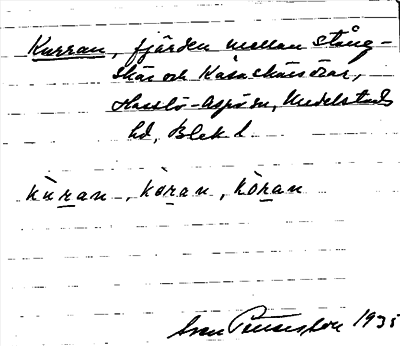 Kurran, fjärden mellan Stång-
skär och Kåsaskärsörar,
Hasslö-Aspö sn, Medelstads
hd, Blek. l.
kùran, kòran, kòran
Sven Benson 1935